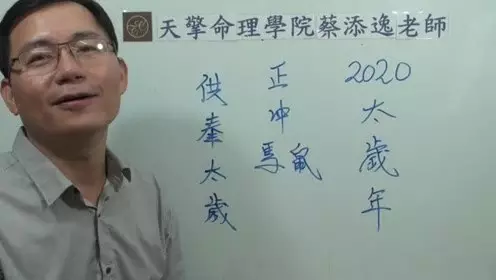 天擎命理學院蔡添逸老師
2020太歲年
正冲鼠馬
供奉太歲